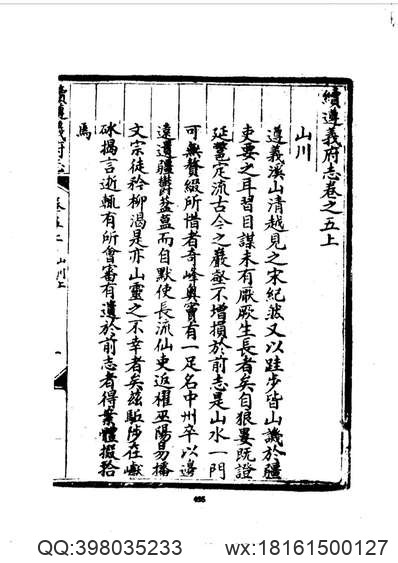 續遵義府志卷之五上
山川
遵義溪山清越見之宋紀然又以跬步皆山譏於疆
吏要之耳習目謀未有厭厥生長者矣自狼㬥既證
延鼈定流古今之巖壑不增損於前志是山水一門
可無贅綴所惜者奇峰奧竇有一足名中州卒以邊
遠遺疆欝藍而自默使長流仙吏近櫂巫陽易播
文宗徒矜柳渴是亦山靈之不幸者矣茲馸陟在巘
砯揭言逝輒有所會審有遺於前志者得業體掇拾
焉
續遵義府志
卷五上
山川上
一
495
QQ:398035233
wx:18161500127